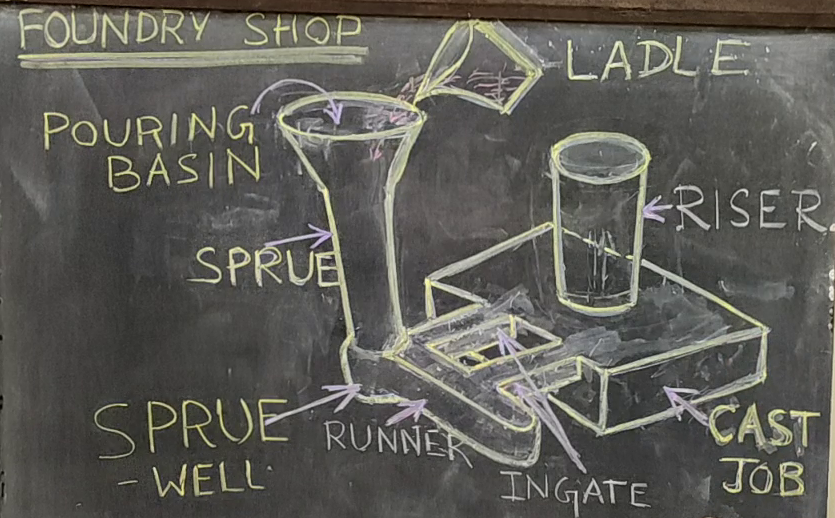 FOUNDRY SHOP
LADLE
POURING
BASIN
RISER
SPRUE
SPRUE
-WELL
RUNNER
INGATE
CAST
JOB